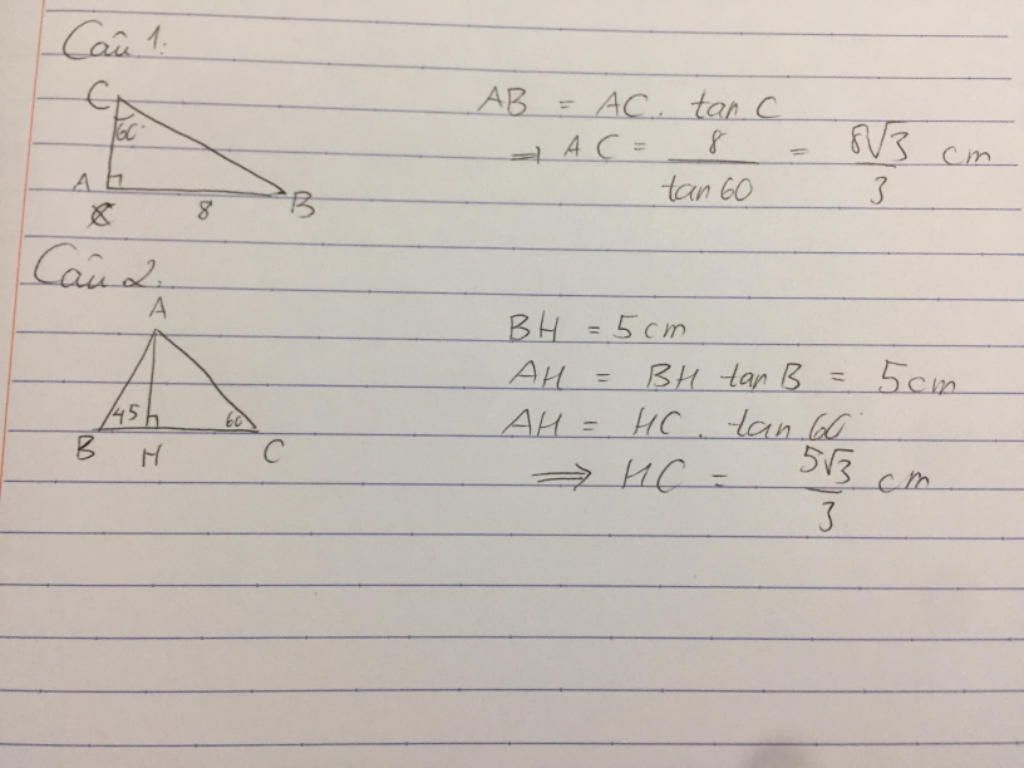 Câu 1:
C
60°
A
8
B
AB = AC. tan C
⇒ AC = 8 / tan 60 = 8√3 / 3 cm
Câu 2.
A
45
60
B
H
C
BH = 5 cm
AH = BH tan B = 5 cm
AH = HC. tan 60°
⇒ HC = 5√3 / 3 cm